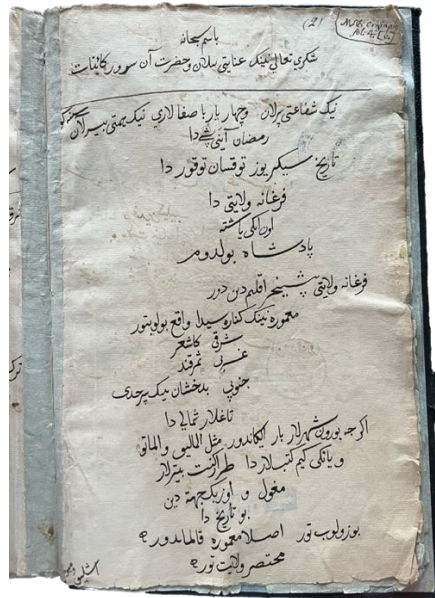 (2)
باسم سبحانه
شكرى تعالى نينك عنايتى بيلان و حضرت آن سرور كائنات
نينك شفاعتى بيرلان و چهار يار باصفالارى نينك همتى بيرلان
رمضان آيى
تاريخ سيكز يوز توقسان توقوز دا
فرغانه ولايتى دا
اون ايكى ياشته
پادشاه بولدوم
فرغانه ولايتى پنجم اقليم دين دور
معموره نينك كناره سيدا واقع بولوبتور
شرقى كاشغر
غربى سمرقند
جنوبى بدخشان نينك سرحدى
تاغلار شمالى دا
اكرچه بورون شهرلار بار ايكاندور مثل الماليق والماتو
و يانكى كيم كتبلاردا طراركنت بيتيرلار
مغول و اوزبك جهة دين
بو تاريخ دا
بوزولوب تور اصلا معموره قالماندور
مختصر ولايت تور